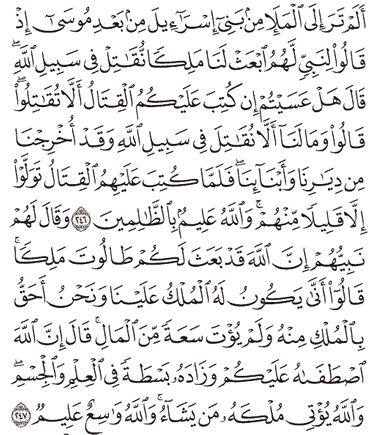 أَلَمْ تَرَ إِلَى ٱلْمَلَإِ مِنۢ بَنِىٓ إِسْرَٰٓءِيلَ مِنۢ بَعْدِ مُوسَىٰٓ إِذْ
قَالُوا۟ لِنَبِىٍّ لَّهُمُ ٱبْعَثْ لَنَا مَلِكًا نُّقَٰتِلْ فِى سَبِيلِ ٱللَّهِ ۖ
قَالَ هَلْ عَسَيْتُمْ إِن كُتِبَ عَلَيْكُمُ ٱلْقِتَالُ أَلَّا تُقَٰتِلُوا۟ ۖ
قَالُوا۟ وَمَا لَنَآ أَلَّا نُقَٰتِلَ فِى سَبِيلِ ٱللَّهِ وَقَدْ أُخْرِجْنَا
مِن دِيَٰرِنَا وَأَبْنَآئِنَا ۖ فَلَمَّا كُتِبَ عَلَيْهِمُ ٱلْقِتَالُ تَوَلَّوْا۟
إِلَّا قَلِيلًا مِّنْهُمْ ۗ وَٱللَّهُ عَلِيمٌۢ بِٱلظَّٰلِمِينَ ٢٤٦ وَقَالَ لَهُمْ
نَبِيُّهُمْ إِنَّ ٱللَّهَ قَدْ بَعَثَ لَكُمْ طَالُوتَ مَلِكًا ۚ
قَالُوٓا۟ أَنَّىٰ يَكُونُ لَهُ ٱلْمُلْكُ عَلَيْنَا وَنَحْنُ أَحَقُّ
بِٱلْمُلْكِ مِنْهُ وَلَمْ يُؤْتَ سَعَةً مِّنَ ٱلْمَالِ ۚ قَالَ إِنَّ ٱللَّهَ
ٱصْطَفَىٰهُ عَلَيْكُمْ وَزَادَهُۥ بَسْطَةً فِى ٱلْعِلْمِ وَٱلْجِسْمِ ۖ
وَٱللَّهُ يُؤْتِى مُلْكَهُۥ مَن يَشَآءُ ۚ وَٱللَّهُ وَٰسِعٌ عَلِيمٌ ٢٤٧